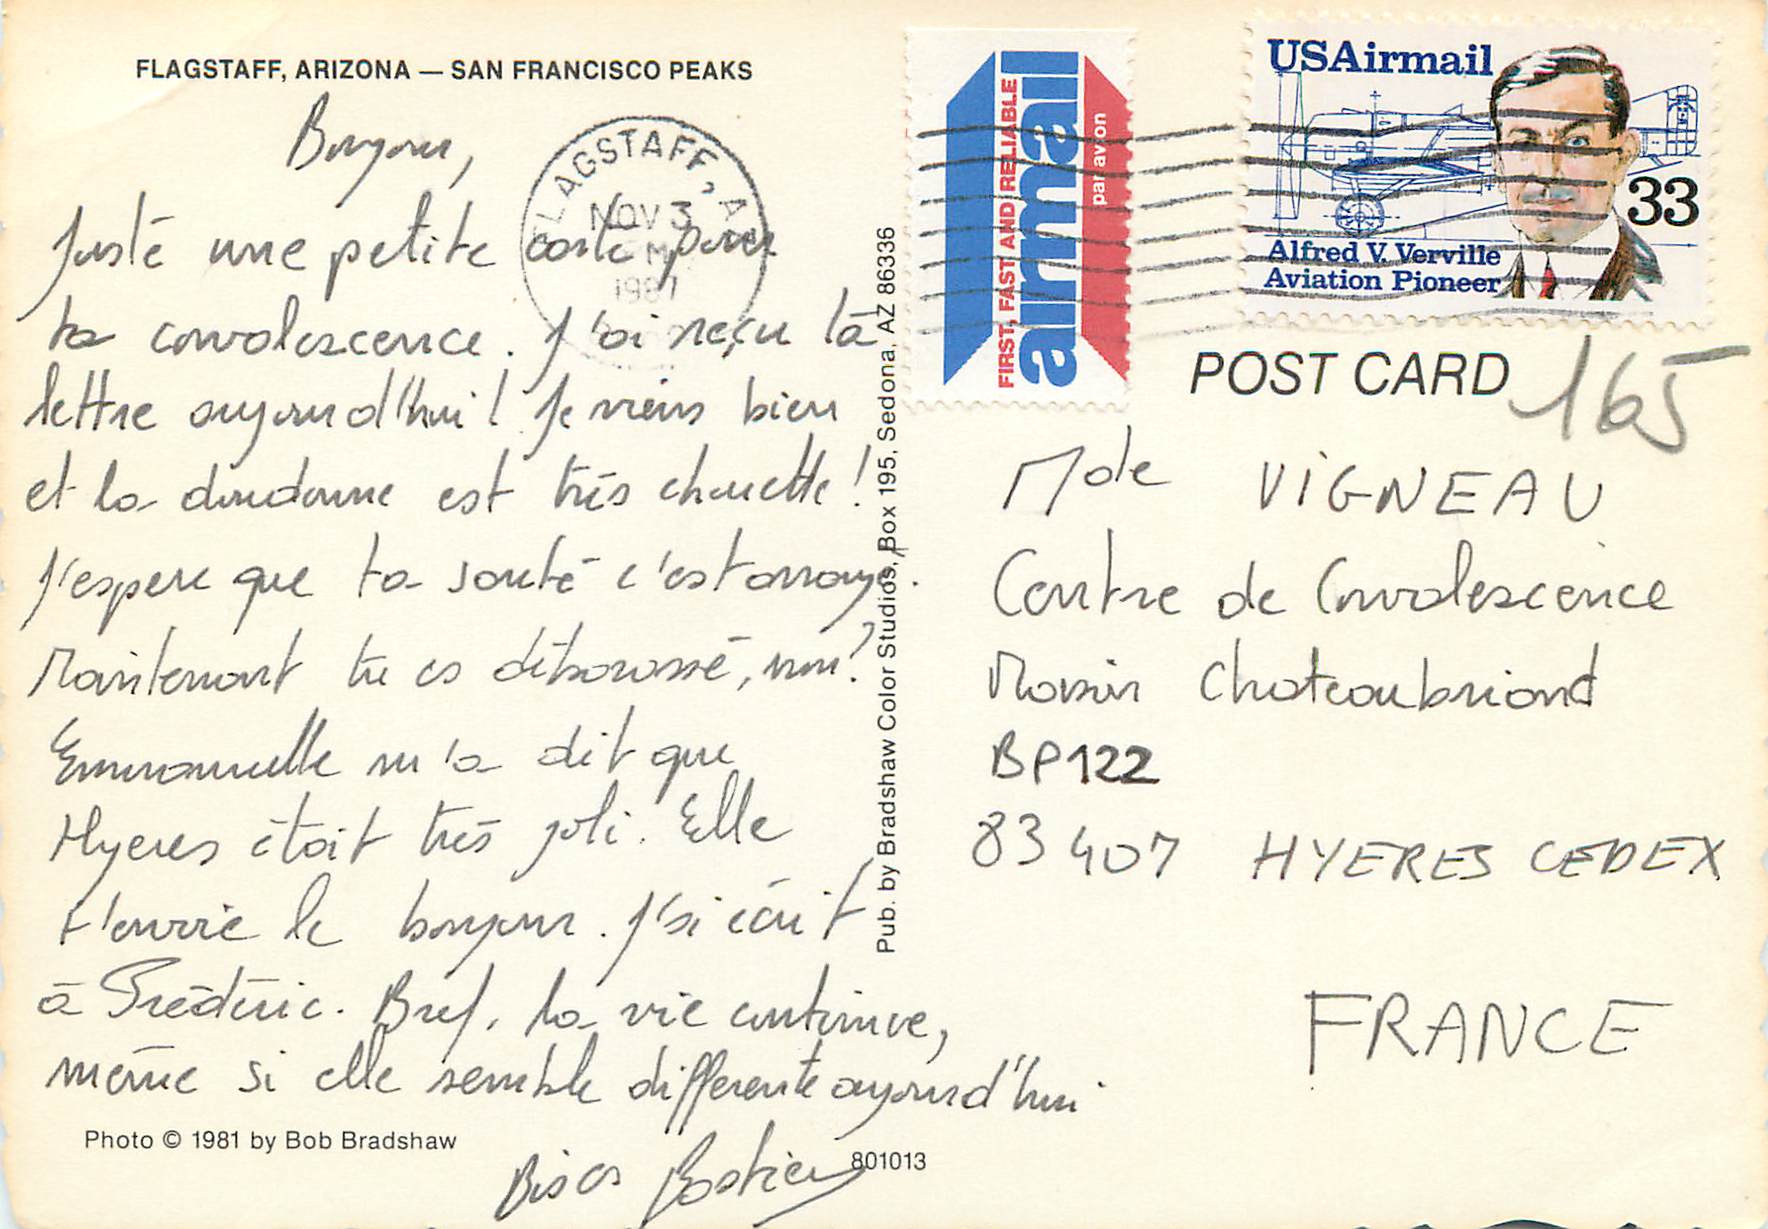 FLAGSTAFF, ARIZONA — SAN FRANCISCO PEAKS
Bonjour,
Juste une petite carte pour
ta convalescence. J'ai reçu ta
lettre aujourd'hui! Je viens bien
et la doudoune est très chouette!
J'espere que ta santé c'est arrangé.
Maintenant tu es débarassé, non?
Emmanuelle m'a dit que
Hyeres était très joli. Elle
t'envoie le bonjour. J'ai écrit
à Frédéric. Bref, la vie continue,
même si elle semble differente aujourd'hui
Bises Bastien
Photo © 1981 by Bob Bradshaw
801013
Pub. by Bradshaw Color Studios, Box 195, Sedona, AZ 86336
FLAGSTAFF, A
NOV 3
1987
FIRST, FAST AND RELIABLE
airmail
par avion
USAirmail
33
Alfred V. Verville
Aviation Pioneer
POST CARD
165
Mde VIGNEAU
Centre de Convalescence
Maison Chateaubriand
BP122
83407 HYERES CEDEX
FRANCE